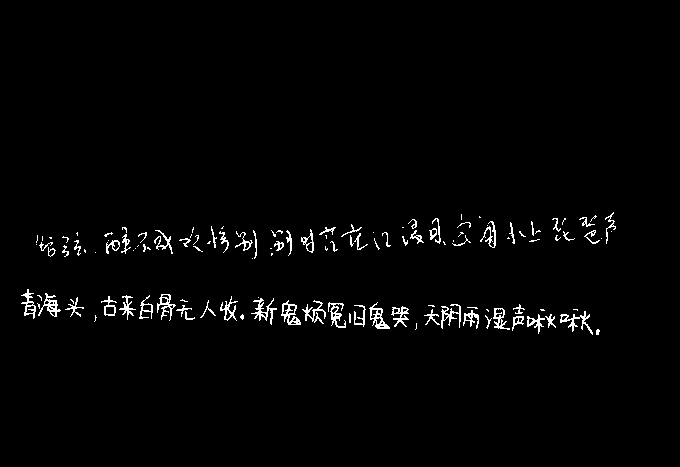 弦 醉不成欢惨别 别时茫茫江浸月 忽闻水上琵琶声
青海头,古来白骨无人收.新鬼烦冤旧鬼哭,天阴雨湿声啾啾.